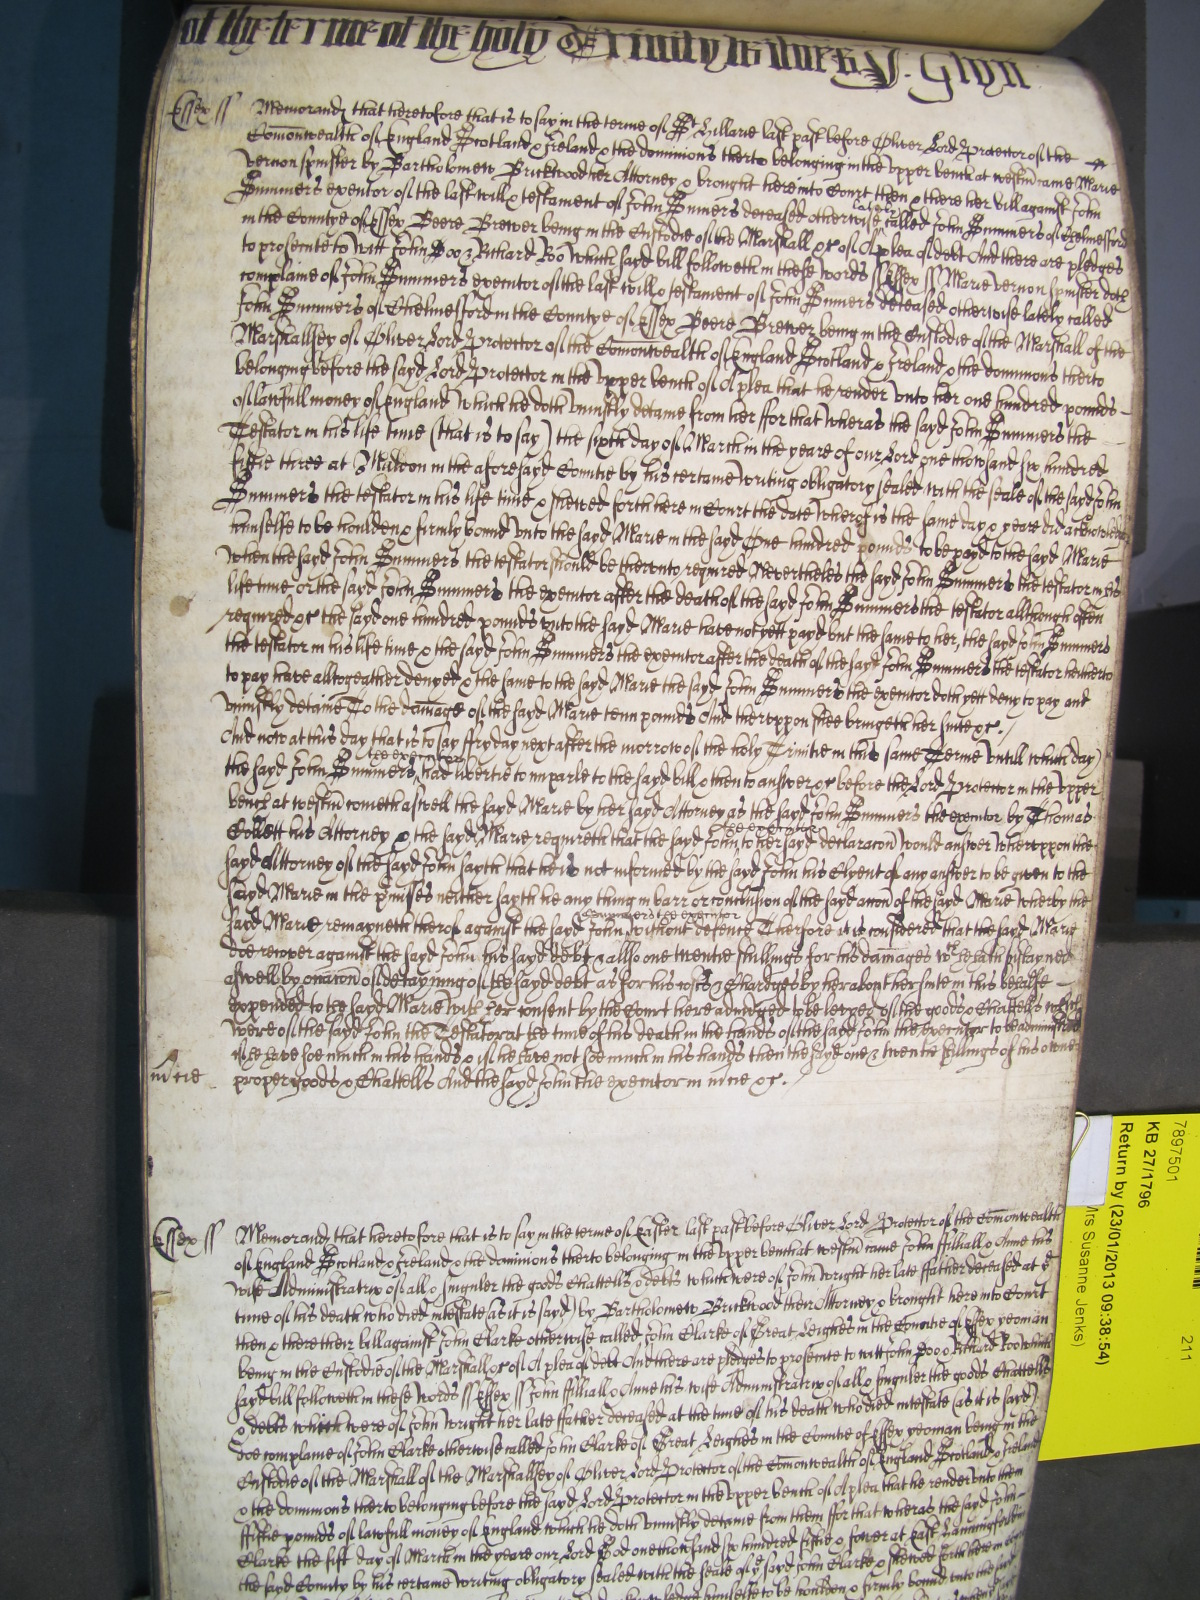 of the terme of the holy Trinity witnes J. Glyn
Essex ss Memorand that heretofore that is to say in the terme of St Hillarie last past before Oliver Lord Protector of the
Comonwealth of England Scotland & Ireland & the dominions therto belonging in the upper bench at westm came Marie
Vernon spinster by Bartholomew Brickwood her Attorney & brought here into Court then & there her bill against John
Summers executor of the last will & testament of John Sumers deceased otherwise lately called John Summers of Chelmesford
in the Countye of Essex Beere Brewer being in the Custodie of the Marshall &c of A plea of debt And there are pledges
to prosecute to witt John Doo & Richard Roo Which sayd bill followeth in these words ss Essex ss Marie Vernon spinster doth
complaine of John Summers executor of the last will & testament of John Sumers deceased otherwise lately called
John Summers of Chelmesford in the Countye of Essex Beere Brewer being in the Custodie of the Marshall of the
Marshallsey of Oliver Lord Protector of the Comonwealth of England Scotland & Ireland & the dominions therto
belonging before the sayd Lord Protector in the upper bench of A plea that he render unto her one hundred pounds
of lawfull money of England Which he doth uniustly detaine from her ffor that wheras the sayd John Summers the
Testator in his life time (that is to say) the sixth day of March in the yeare of our Lord one thousand six hundred
fiftie three at Maldon in the aforesayd Countie by his certaine writing obligatory sealed with the seale of the sayd John
Summers the testator in his life time & shewed forth here in Court the date wherof is the same day & yeare did acknowledge
himselfe to be houlden & firmly bound unto the sayd Marie in the sayd One hundred pounds to be payd to the sayd Marie
when the sayd John Summers the testator should be therunto required Nevertheles the sayd John Summers the testator in his
life time or the sayd John Summers the executor after the death of the sayd John Summers the testator although often
required &c the sayd one hundred pounds unto the sayd Marie have not yett payd but the same to her, the sayd John Summers
the testator in his life time & the sayd John Summers the executor after the death of the sayd John Summers the testator hitherto
to pay have alltogeather denyed & the same to the sayd Marie the sayd John Summers the executor doth yet deny to pay and
uniustly detaine To the damage of the sayd Marie tenn pounds And therupon shee bringeth her suite &c.
And now at this day that is to say ffryday next after the morrow of the holy Trinitie in this same Terme Untill which day
the sayd John Summers the executor had libertie to imparle to the sayd bill & then to answer &c before the Lord Protector in the upper
bench at westm cometh aswell the sayd Marie by her sayd Attorney as the sayd John Summers the executor by Thomas
Collett his Attorney & the sayd Marie requireth that the sayd John the executor to her sayd declaracon would answer Wheruppon the
sayd Attorney of the sayd John sayth that he is not informed by the sayd John his Clyent of any answer to be given to the
sayd Marie in the p'misses neither sayth he any thing in barr or conclusion of the sayd accon of the sayd Marie Wherby the
sayd Marie remayneth therof against the sayd John Summers the executor without defence Therfore it is considered that the sayd Marie
doe recover against the sayd John his sayd debt & allso one & twentie shillings for the damages wch he hath sustayned
aswell by occacion of detayning of the sayd debt as for his costs & Chardges by her about her suite in this behalfe
expended to the sayd Marie with her consent by the Court here adiudged to be levyed of the goods & Chattells which
were of the sayd John the Testator at the time of his death in the hands of the sayd John the executor to be administred
if he have soe much in his hands & if he have not soe much in his hands then the sayd one & twentie shillings of his owne
m'cie proper goods & Chattells And the sayd John the executor in m'cie &c.
Essex ss Memorand that heretofore that is to say in the terme of Easter last past before Oliver Lord Protector of the Comonwealth
of England Scotland & Ireland & the dominions therto belonging in the upper bench at westm came John ffilliall & Anne his
wife Administratrix of all & singuler the goods Chattells & debts which were of John Wright her late ffather deceased at ye
time of his death who died intestate (as it is sayd) by Bartholomew Brickwood their Attorney & brought here into Court
then & there their bill against John Clarke otherwise called John Clarke of Great Leighes in the Countie of Essex yeoman
being in the Custodie of the Marshall &c of A plea of debt And there are pledges to prosecute to witt John Doo & Richard Roo which
sayd bill followeth in these words ss Essex ss John ffilliall & Anne his wife Administratrix of all & singuler the goods Chattells
& debts which were of John Wright her late ffather deceased at the time of his death who died intestate (as it is sayd)
doe complaine of John Clarke otherwise called John Clarke of Great Leighes in the Countie of Essex yeoman being in the
Custodie of the Marshall of the Marshallsey of Oliver Lord Protector of the Comonwealth of England Scotland & Ireland
& the dominions therto belonging before the sayd Lord Protector in the upper bench of A plea that he render unto them
fiftie pounds of lawfull money of England which he doth uniustly detaine from them ffor that wheras the sayd John
Clarke the fift day of March in the yeare our Lord God one thousand six hundred fiftie & fower at East
the sayd County by his certaine writing obligatory sealed with the seale of ye sayd John Clarke & shewed forth here in
himselfe to be houlden & firmly bound unto the sayd
7897501
211
KB 27/1796
Return by (23/01/2013 09:38:54)
Mrs Susanne Jenks)